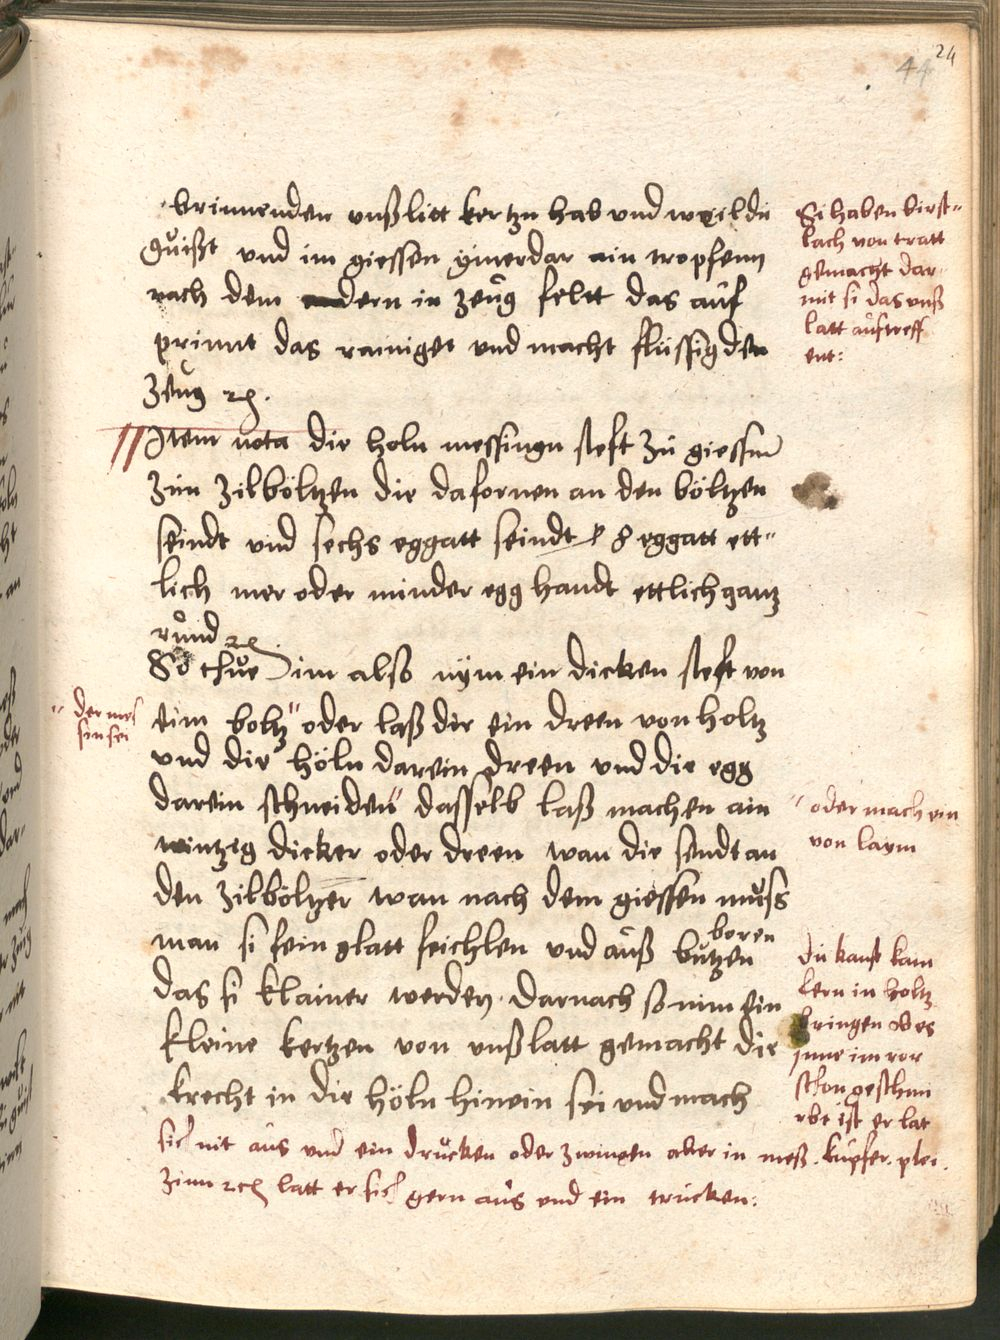 24
44
brinnenden unßlitt kertzn hab und weil du
guißt und im giessen ymerdar ain tropfenn
nach dem andern in zeug felt das auf
prinnt das rainiget und macht flüssig den
zeug
Si haben birst-
lach von tratt
gemacht dar
mit si das unß
latt auftreff
ent:
Item nota die holn messingn steft zu giessen
zun zilböltzen die dafornen an den böltzen
seindt und sechs eggatt seindt 8 eggatt ett-
lich mer oder minder egg handt ettlich gantz
rund
So thue im also nym ein dicken steft von
der mes
sin sei
eim boltz" oder laß dir ein dreen von holtz
und die höln darein dreen und die egg
darein schneiden" dasselb laß machen ain
" oder mach ein
von laym
wintzig dicker oder dreen wan die sendt an
den zilböltzer wan nach dem giessen muss
man si fein glatt feichlen und auß butzen
boren
das si klainer werden. darnach so nim ein
kleine kertzen von unßlatt gemacht die
krecht in die höln hinein sei und mach
du kanst kain
lern in holtz
bringen
inne im ror
schon
ist er lat
sich nit aus und ein drucken oder zwingen aber in meß. kupfer. plei.
zinn latt er sich gern aus und ein trucken: